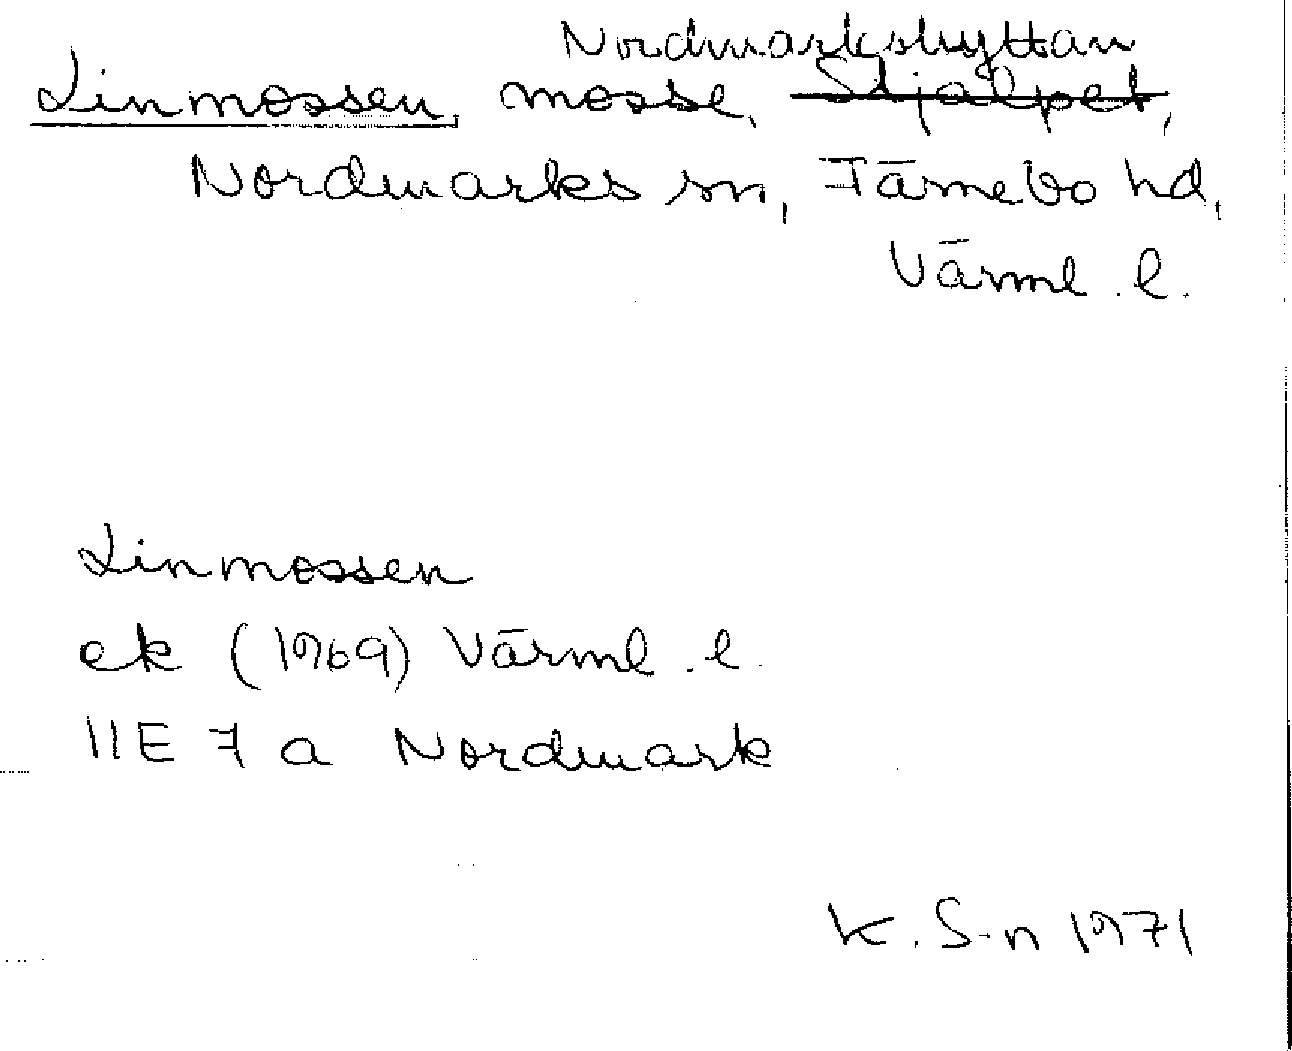 Nordmarkshyttan
Linmossen, mosse, Stjälpet,
Nordmarks sn, Färnebo hd,
Värml. l.
Linmossen
ek (1969) Värml. l.
11E 7 a Nordmark
K. S-n 1971